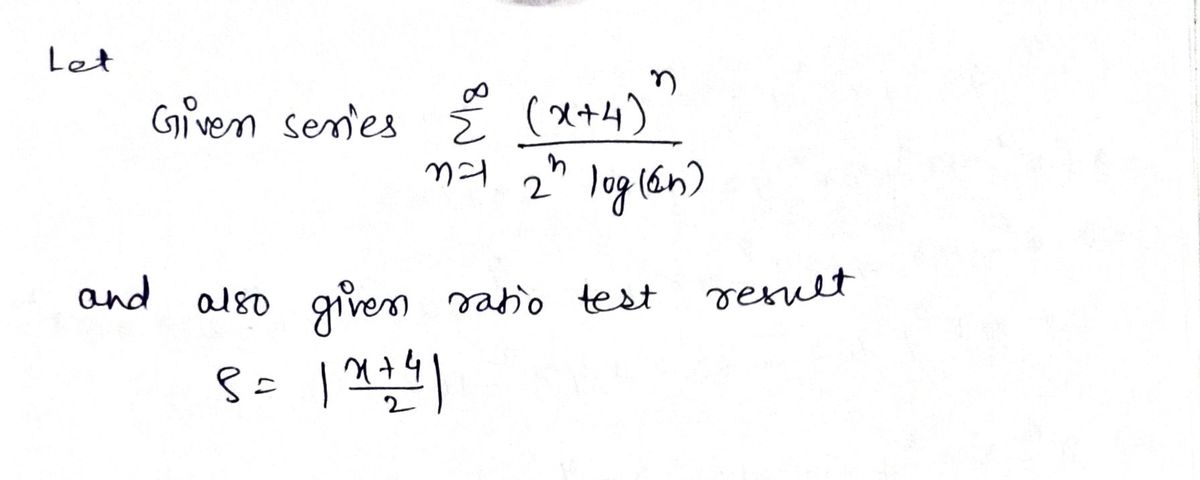 Let
Given series ∞ Σ n=1 (x+4)^n / 2^n log(6n)
and also given ratio test result
ρ = | x+4 / 2 |